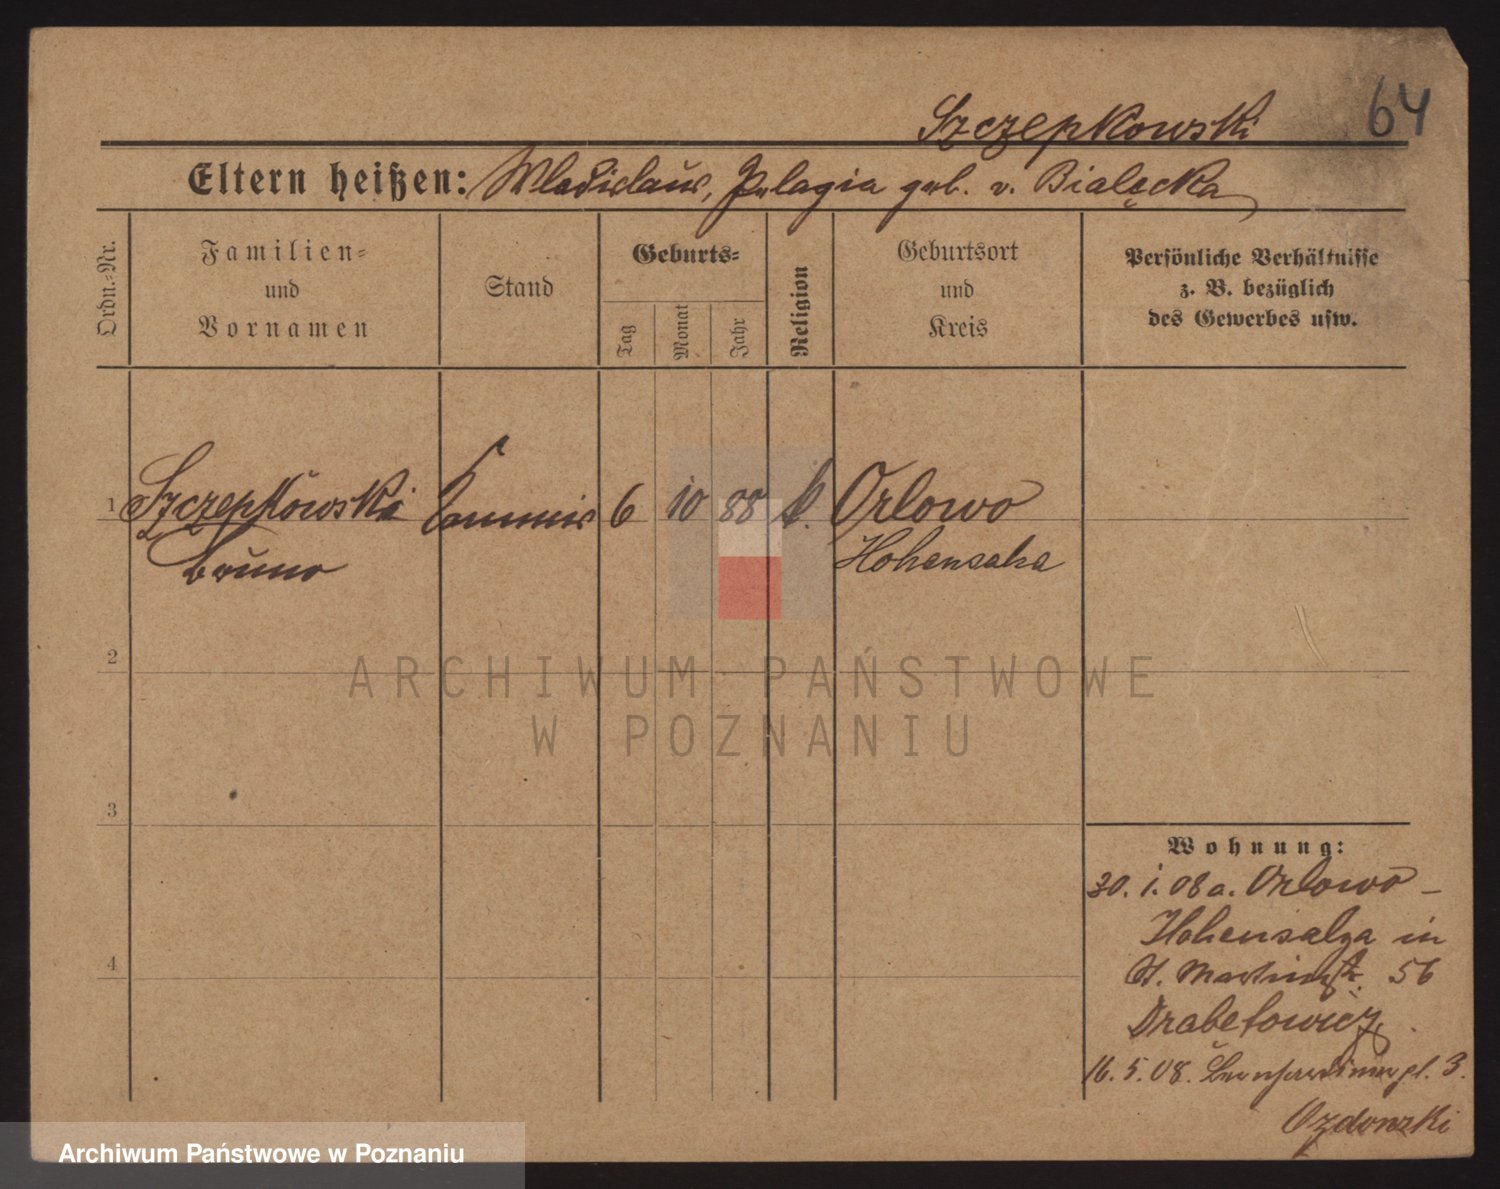 64
Szczepkowski
Eltern heißen: Wladislaus, Pelagia geb. v. Bialęcka
Ordn.=Nr.
Familien=
und
Vornamen
Stand
Geburts=
Tag
Monat
Jahr
Religion
Geburtsort
und
Kreis
Persönliche Verhältnisse
z. B. bezüglich
des Gewerbes usw.
1 Szczepkowski Kommis 6 10 88 k. Orlowo
Bruno Hohensalza
2
3
4
Wohnung:
30. 1. 08 a. Orlowo -
Hohensalza in
St. Martinstr. 56
Drabetowicz
16. 5. 08. Bernhardinerpl. 3.
Ozdonzki
ARCHIWUM PAŃSTWOWE
W POZNANIU
Archiwum Państwowe w Poznaniu